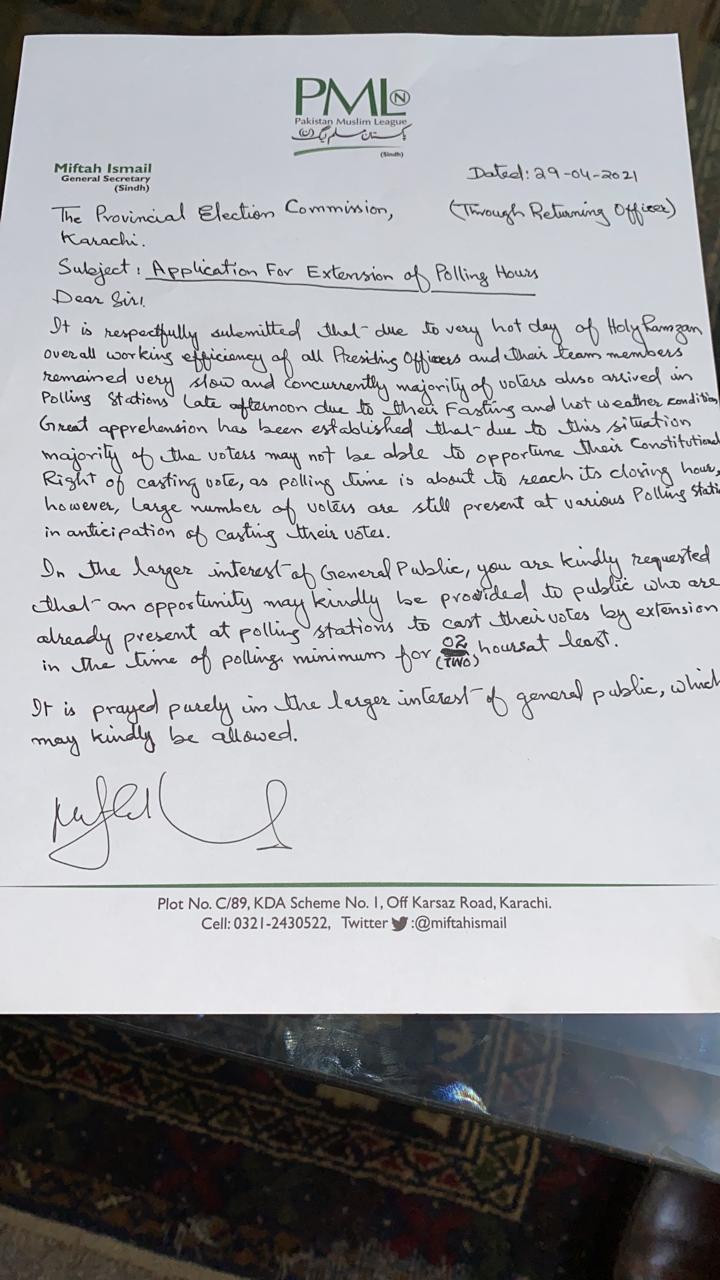 PML N
Pakistan Muslim League
پاکستان مسلم لیگ (ن)
(Sindh)
Miftah Ismail
General Secretary
(Sindh)
Dated: 29-04-2021
The Provincial Election Commission, (Through Returning Officer)
Karachi.
Subject: Application For Extension of Polling Hours
Dear Sir!
It is respectfully submitted that due to very hot day of Holy Ramzan
overall working efficiency of all Presiding Officers and their team members
remained very slow and concurrently majority of voters also arrived in
Polling Stations late afternoon due to their Fasting and hot weather condition
Great apprehension has been established that due to this situation
majority of the voters may not be able to opportune their Constitutional
Right of casting vote, as polling time is about to reach its closing hour,
however, large number of voters are still present at various Polling Stati
in anticipation of casting their votes.
In the larger interest of General Public, you are kindly requested
that an opportunity may kindly be provided to public who are
already present at polling stations to cast their votes by extension
in the time of polling minimum for 02 (TWO) hours at least.
It is prayed purely in the larger interest of general public, which
may kindly be allowed.
Plot No. C/89, KDA Scheme No. 1, Off Karsaz Road, Karachi.
Cell: 0321-2430522, Twitter :@miftahismail